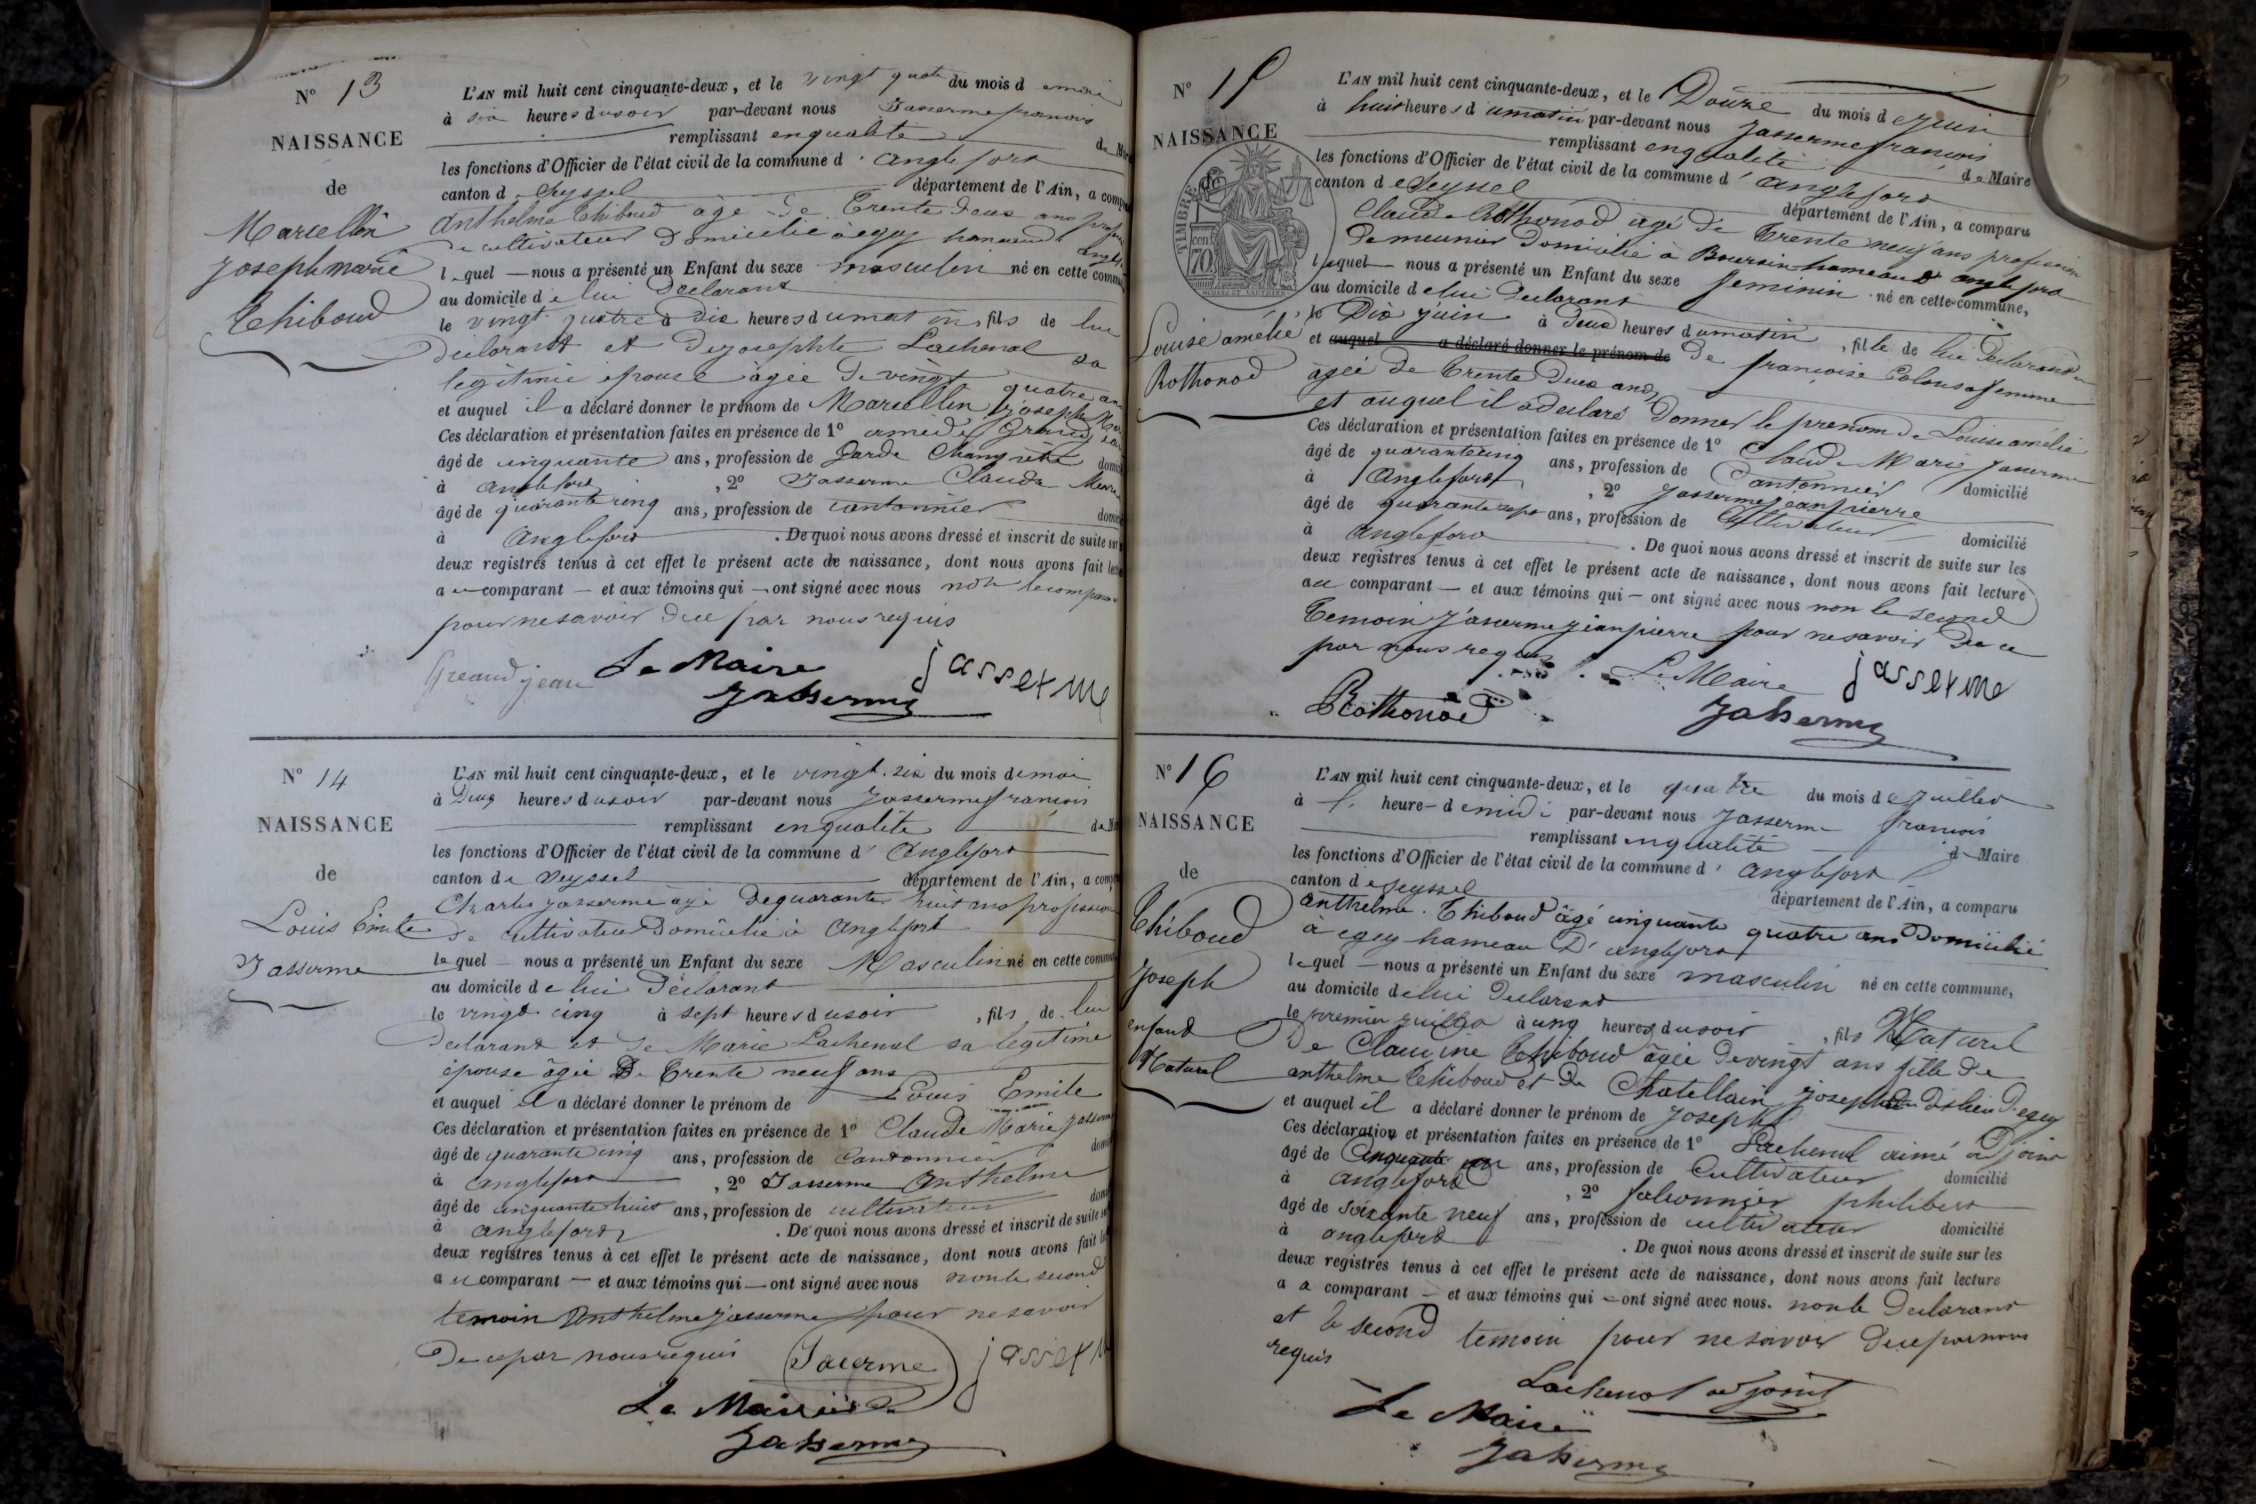 N° 13
NAISSANCE
de
Marcellin
Joseph marie
Thiboud
L'AN mil huit cent cinquante-deux, et le vingt quatre du mois d emai
à six heures dusoir par-devant nous Jasserme francois
remplissant enqualité de Mai
les fonctions d'Officier de l'état civil de la commune d' anglefort
canton de Seyssel département de l'Ain, a comp
Anthelme Thiboud agé de Trente deux ans profes
de cultivateur Domicilie à egy hameaud anglef
lequel nous a présenté un Enfant du sexe masculin né en cette comm
au domicile de lui Declarant
le vingt quatre à dix heures dumatin, fils de lui
declarant et Dejosephte Lachenal sa
legitime epouse agée de vingt quatre ans
et auquel il a déclaré donner le prénom de Marcellin joseph Mar
Ces déclaration et présentation faites en présence de 1°
âgé de cinquante ans, profession de Garde Champêtre domi
à anglefort, 2° Jasserme Claude Marie
âgé de quarante cinq ans, profession de cantonnier domici
à Anglefort. De quoi nous avons dressé et inscrit de suite sur
deux registres tenus à cet effet le présent acte de naissance, dont nous avons fait lec
au comparant et aux témoins qui ont signé avec nous non lecompar
pour nesavoir Dece par nous requis
Greaud jean Le Maire jasserme
Jasserme
N° 14
NAISSANCE
de
Louis Emile
Jasserme
L'AN mil huit cent cinquante-deux, et le vingt six du mois demai
à Deux heures dusoir par-devant nous Jasserme francois
remplissant enqualité de Ma
les fonctions d'Officier de l'état civil de la commune d' Anglefort
canton de Seyssel département de l'Ain, a comp
Charles jasserme agé dequarante huit ans profession
de cultivateur Domicilié à Anglefort
lequel nous a présenté un Enfant du sexe Masculin né en cette comm
au domicile de lui Declarant
le vingt cinq à sept heures dusoir, fils de lui
Declarant et de Marie Lachenal sa legitime
épouse âgée De Trente neuf ans
et auquel il a déclaré donner le prénom de Louis Emile
Ces déclaration et présentation faites en présence de 1° Claude Marie Jasserm
âgé de quarante cinq ans, profession de Cantonnier domi
à anglefort, 2° Jasserme Anthelme
âgé de cinquante huit ans, profession de cultivateur domi
à anglefort. De quoi nous avons dressé et inscrit de suite su
deux registres tenus à cet effet le présent acte de naissance, dont nous avons fait le
au comparant et aux témoins qui ont signé avec nous nonle second
temoin Anthelme Jasserme pour nesavoir
De cepar nousrequis Jacerme jasserm
Le Maire
Jasserme
N° 15
NAISSANCE
de
TIMBRE
cen
70
Louise amélie
Rothonod
L'AN mil huit cent cinquante-deux, et le Douze du mois d ejuin
à huit heures d umatin par-devant nous Jasserme francois
remplissant enqualité de Maire
les fonctions d'Officier de l'état civil de la commune d' anglefort
canton d eSeyssel département de l'Ain, a comparu
Claude Rothonod agé de Trente neuf ans profession
de meunier domicilié à Boursin hameau d' anglefort
lequel nous a présenté un Enfant du sexe feminin né en cette commune,
au domicile de lui Declarant
le Dix juin à deux heures dumatin, fille de lui Declarant
et auquel a déclaré donner le prénom de De françoise Colous sa femme
agée de Trente Deux ans,
et auquel il adeclaré Donner le prenom de Louise amélie
Ces déclaration et présentation faites en présence de 1° Claude Marie Jasserme
âgé de quarantecinq ans, profession de Cantonnier domicilié
à Anglefort, 2° Jasserme jeanpierre
âgé de quarante sept ans, profession de Cultivateur domicilié
à Anglefort. De quoi nous avons dressé et inscrit de suite sur les
deux registres tenus à cet effet le présent acte de naissance, dont nous avons fait lecture
au comparant et aux témoins qui ont signé avec nous non le second
Temoin Jasserme jeanpierre pour nesavoir De ce
par nous requis
Le Maire jasserme
Rothonod Jasserme
N° 16
NAISSANCE
de
Thiboud
Joseph
enfant
Naturel
L'AN mil huit cent cinquante-deux, et le quatre du mois de juillet
à heure demidi par-devant nous Jasserme francois
remplissant enqualité de Maire
les fonctions d'Officier de l'état civil de la commune d' Anglefort
canton de Seyssel département de l'Ain, a comparu
Anthelme Thiboud âgé cinquante quatre ans Domicilié
à egy hameau D' anglefort
lequel nous a présenté un Enfant du sexe masculin né en cette commune,
au domicile de lui Declarant
le premier juillet à cinq heures dusoir, fils Naturel
De Claudine Thiboud agée devingt ans fille de
anthelme Thiboud et de Chatellain Josephte dulieu d'egy
et auquel il a déclaré donner le prénom de Joseph
Ces déclaration et présentation faites en présence de 1° Lachenal aimé adjoint
âgé de Cinquante ans, profession de Cultivateur domicilié
à anglefort, 2° philibert
âgé de Soixante neuf ans, profession de cultivateur domicilié
à anglefort. De quoi nous avons dressé et inscrit de suite sur les
deux registres tenus à cet effet le présent acte de naissance, dont nous avons fait lecture
a a comparant et aux témoins qui ont signé avec nous. nonle Declarant
et le second temoin pour nesavoir Dece parnous
requis
Lachenal adjoint
Le Maire
Jasserme